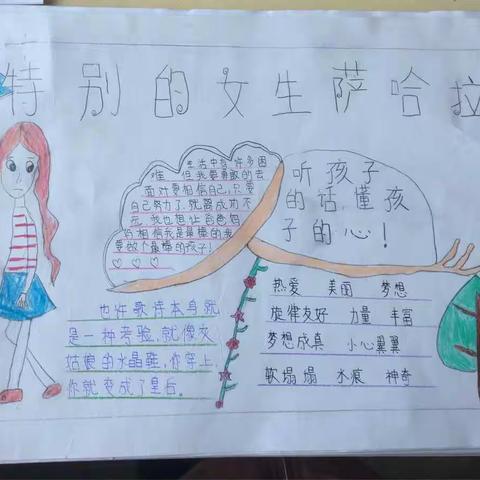 特别的女生萨哈拉
生活中有许多困
难,但我要勇敢的去
面对要相信自己,只要
自己努力了,就离成功不
远,我也想让爸爸妈
妈相信我是最棒的我
要做个最棒的孩子!
听孩子
的话,懂孩
子的心!
也许歌诗本身就
是一种考验,就像灰
姑娘的水晶鞋,你穿上,
你就变成了皇后。
热爱 美丽 梦想
旋律友好 力量 丰富
梦想成真 小心翼翼
软塌塌 水痕 神奇